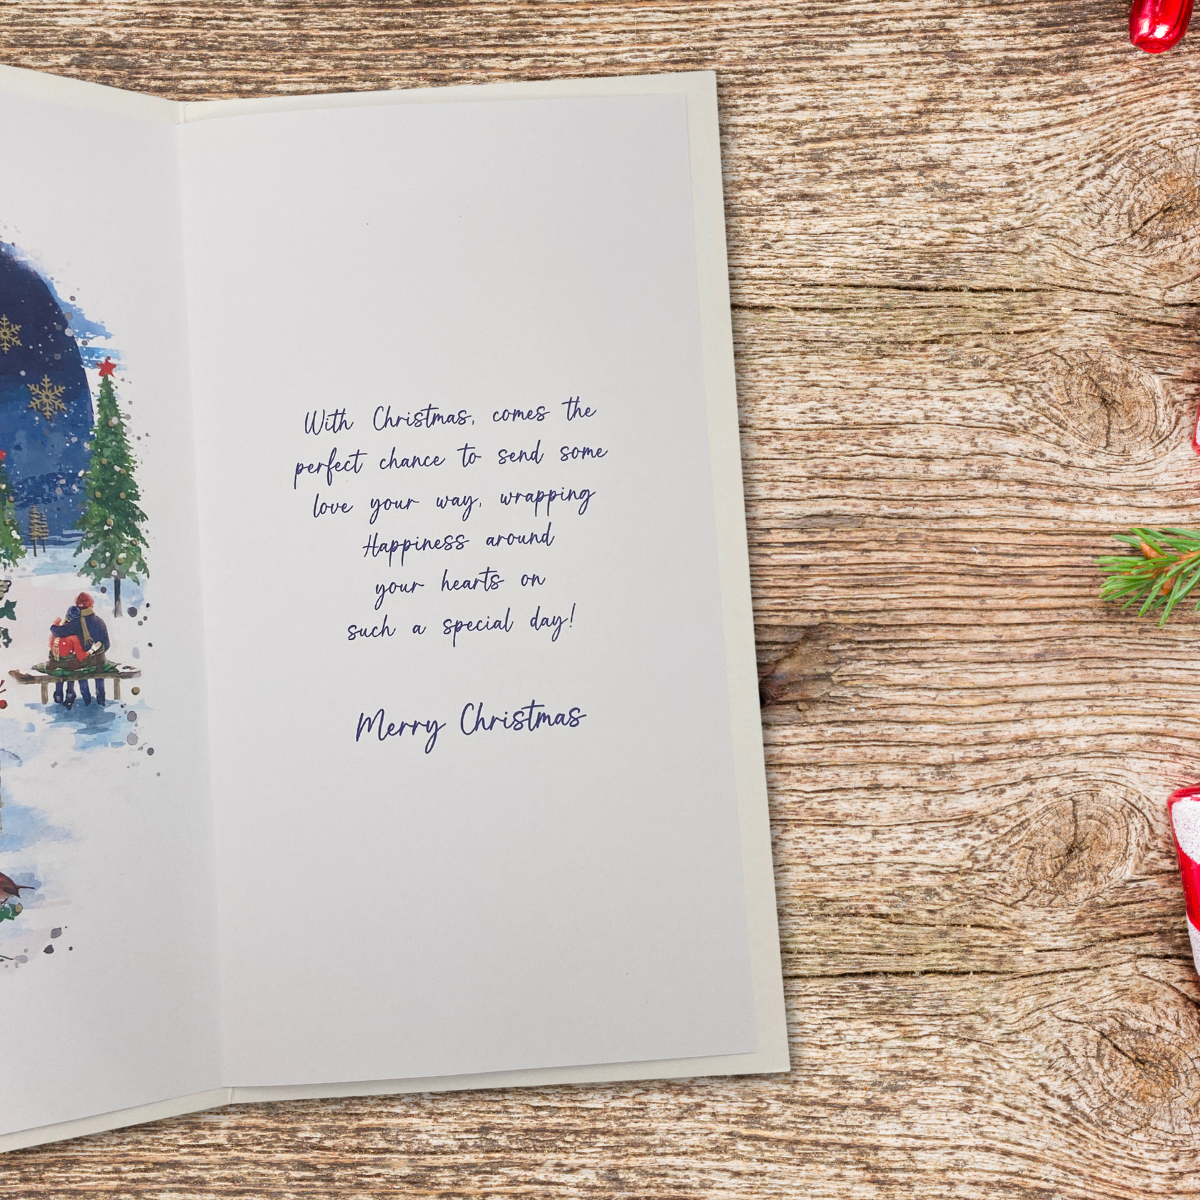 With Christmas, comes the
perfect chance to send some
love your way, wrapping
Happiness around
your hearts on
such a special day!
Merry Christmas